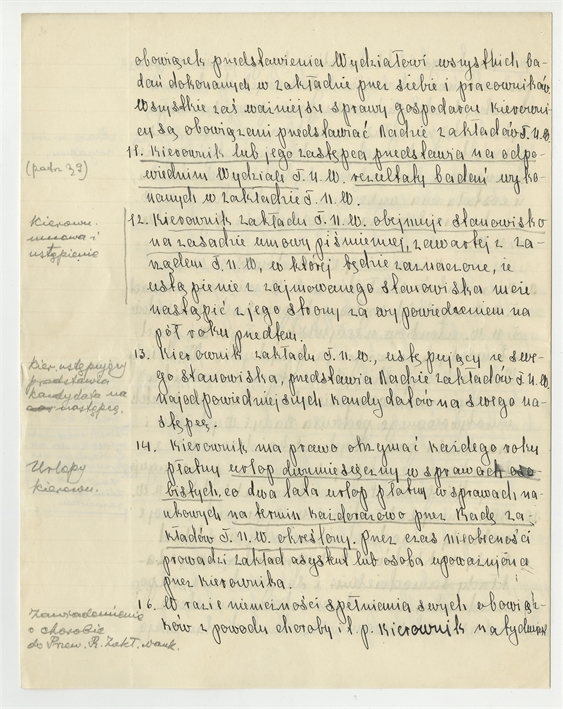 obowiązek przedstawienia Wydziałowi wszystkich ba-
dań dokonanych w zakładzie przez siebie i pracowników.
Wszystkie zaś ważniejsze sprawy gospodarcze Kierowni-
cy są obowiązani przedstawiać Radzie Zakładów T.N.W.
(patrz 39)
11. Kierownik lub jego zastępca przedstawia na odpo-
wiednim Wydziale T.N.W. rezultaty badań wyko-
nanych w zakładzie T.N.W.
Kierown.
umowa i
ustąpienie
12. Kierownik zakładu T.N.W. obejmuje stanowisko
na zasadzie umowy piśmiennej, zawartej z Za-
rządem T.N.W., w której będzie zaznaczone, że
ustąpienie z zajmowanego stanowiska może
nastąpić z jego strony za wypowiedzeniem na
pół roku przedtem.
Kier. ustępujący
przedstawia
kandydata na
następcę.
13. Kierownik zakładu T.N.W., ustępujący ze swe-
go stanowiska, przedstawia Radzie Zakładów T.N.W.
najodpowiedniejszych kandydatów na swego na-
stępcę.
Urlopy
Kierown.
14. Kierownik ma prawo otrzymać każdego roku
płatny urlop dwumiesięczny w sprawach oso-
bistych, co dwa lata urlop płatny w sprawach na-
ukowych na termin każdorazowo przez Radę Za-
kładów T.N.W. określony. Przez czas nieobecności
prowadzi zakład asystent lub osoba upoważniona
przez Kierownika.
Zawiadomienie
o chorobie
do Przew. R. Zakł. Nauk.
16. W razie niemożności spełnienia swych obowiąz-
ków z powodu choroby i t.p. Kierownik natychm